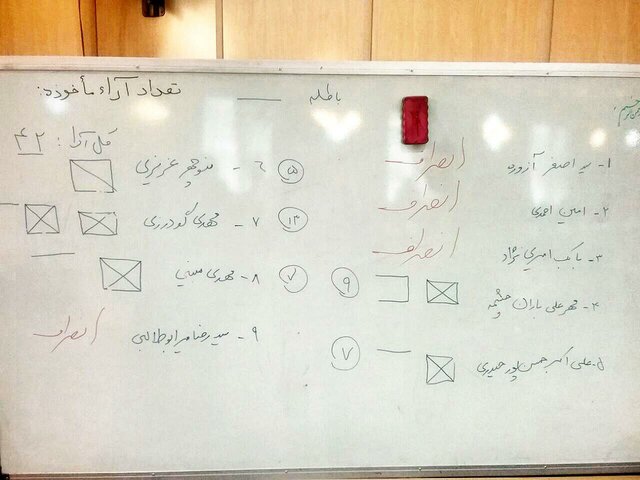 تعداد آراء مأخوذه:
باطله
کل آرا: ۴۲
۱- سید اصغر آزوده انصراف
۲- امین احمدی انصراف
۳- بابک امیری نژاد انصراف
۴- مهرعلی باران چشمه ۹
۵- علی اکبر حسن پور حیدری ۷
۶- منوچهر عزیزی ۵
۷- مهدی گودرزی ۱۳
۸- مهدی مبینی ۷
۹- سید رضا میرابوطالبی انصراف